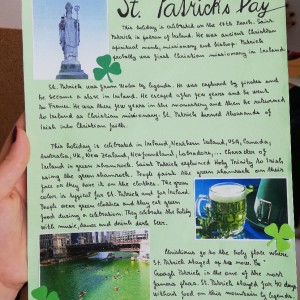 St. Patrick's Day
This holiday is celebrated on the 17th March. Saint
Patrick is patron of Ireland. He was ancient Christian
spiritual words, missionary and bishop. Patrick
probably was first Christian missionary in Ireland.
St. Patrick was from Wales by legenda. He was captured by pirates and
he became a slave in Ireland. He escaped after few years and he went
to France. He was there few years in the monastery and then he returned
to Ireland as Christian missionary. St. Patrick turned thousands of
Irish into Christian faith.
This holiday is celebrated in Ireland, Northern Ireland, USA, Canada,
Australia, UK, New Zealand, Newfoundland, Labrador, ... Character of
Ireland is green shamrock. Saint Patrick explained Holy Trinity to Irish
using the green shamrock. People paint the green shamrock on their
face or they have it on the clothes. The green
color is typical for St. Patrick and for Ireland.
People wear green clothes and they eat green
food during a celebration. They celebrate the holiday
with music, dance and drink beer here.
Christians go to the holy place where
St. Patrick stayed up
Croagh Patrick is the one of the most
famous place. St. Patrick stayed for 40 days
without food on this mountain by legenda.